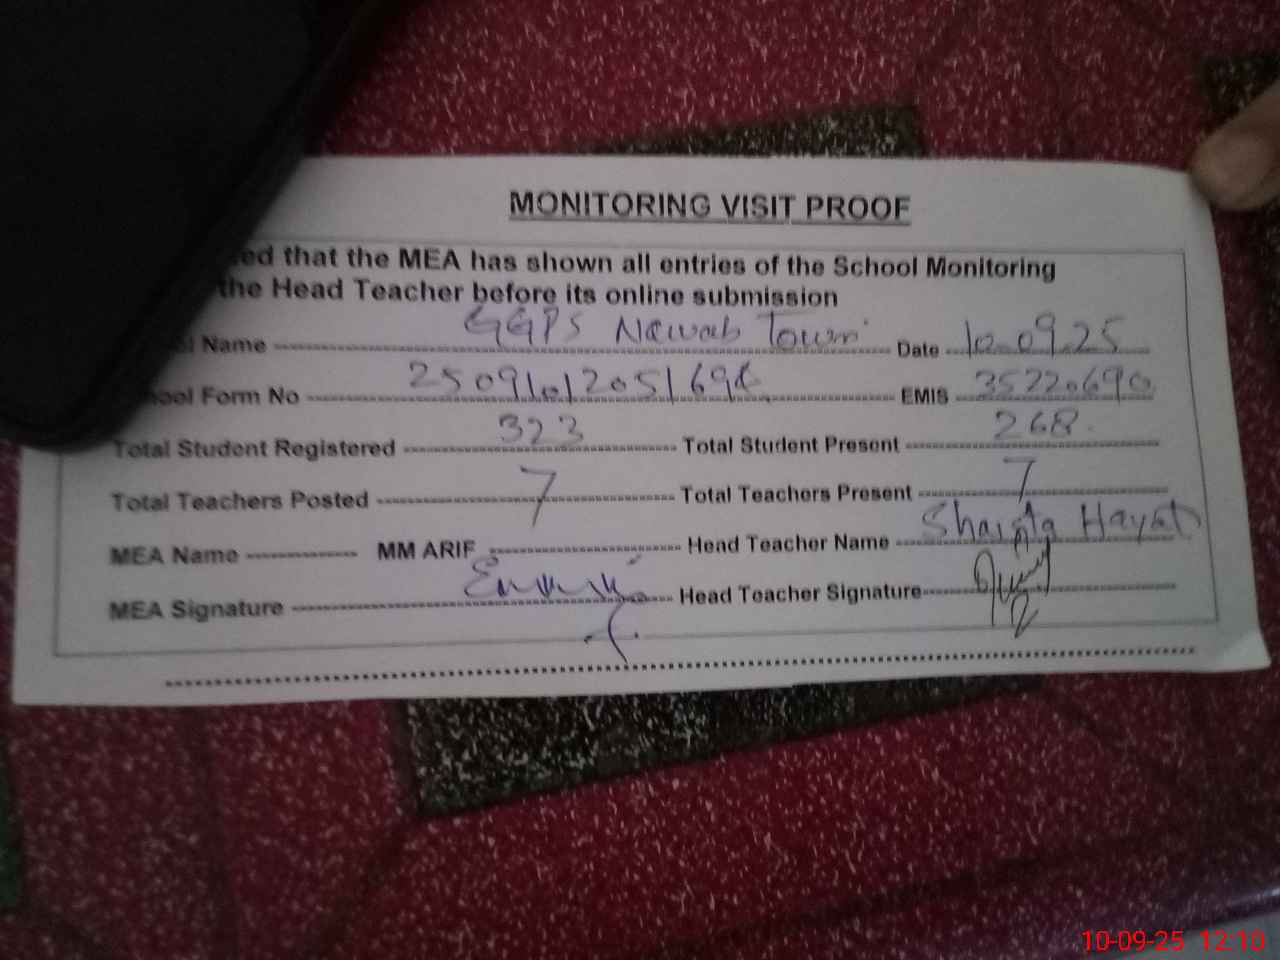 MONITORING VISIT PROOF
that the MEA has shown all entries of the School Monitoring
the Head Teacher before its online submission
Name GGPS Nawab Town Date 10-09-25
Form No EMIS
Total Student Registered 323 Total Student Present 268
Total Teachers Posted 7 Total Teachers Present 7
MEA Name MM ARIF Head Teacher Name Shaista Hayat
MEA Signature Head Teacher Signature
10-09-25 12:10